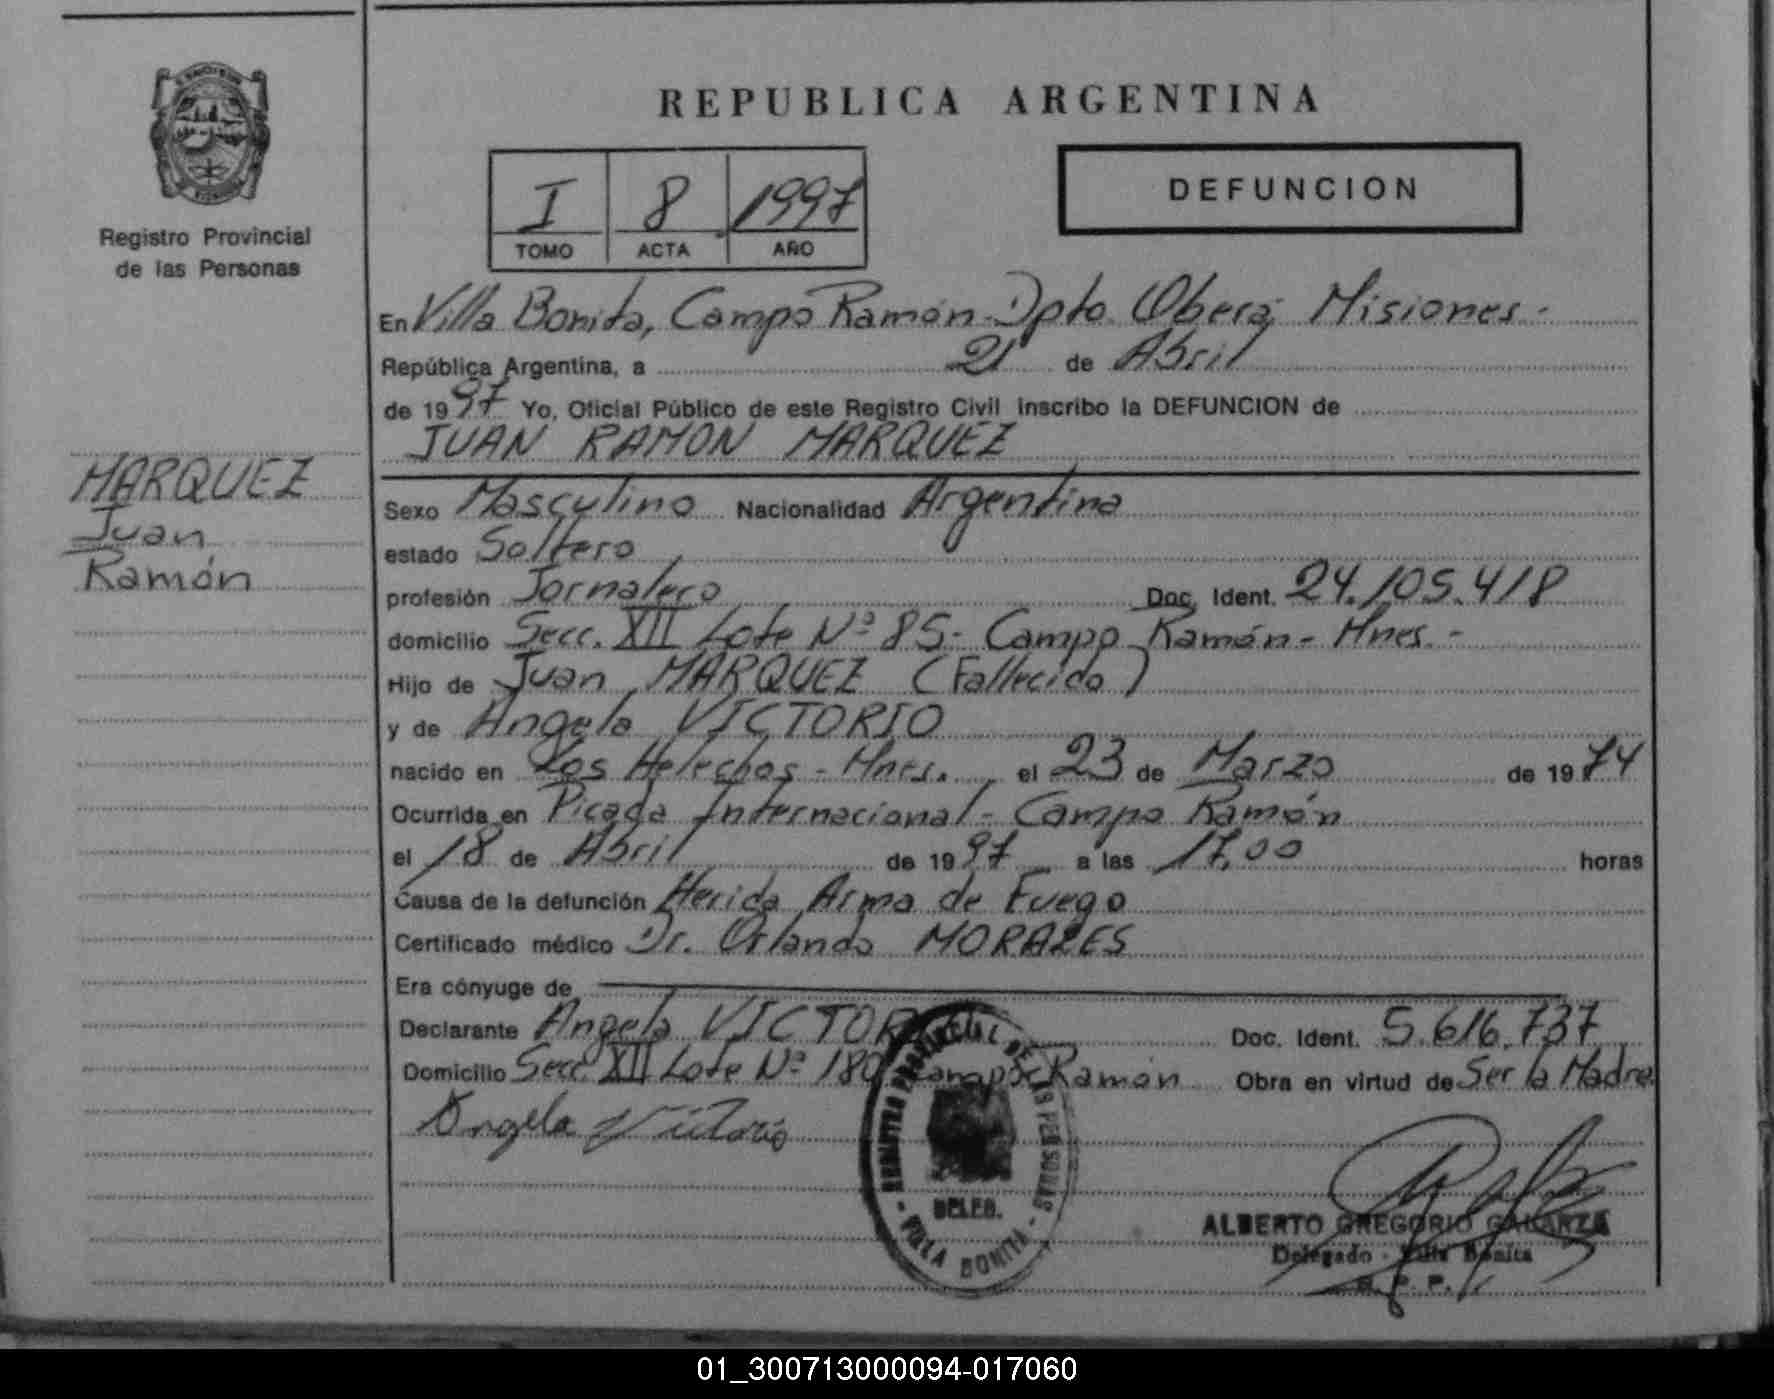 REPUBLICA ARGENTINA
Registro Provincial
de las Personas
I 8 1997
TOMO ACTA AÑO
DEFUNCION
En Villa Bonita, Campo Ramón - Dpto Oberá, Misiones -
República Argentina, a 21 de Abril
de 1997 Yo, Oficial Público de este Registro Civil inscribo la DEFUNCION de
JUAN RAMON MARQUEZ
MARQUEZ
Juan
Ramón
Sexo Masculino Nacionalidad Argentina
estado Soltero
profesión Jornalero Doc. Ident. 24.105.418
domicilio Secc. XII Lote Nº 85 - Campo Ramón - Mnes. -
Hijo de Juan MARQUEZ (Fallecido)
y de Angela VICTORIO
nacido en Los Helechos - Mnes. el 23 de Marzo de 1974
Ocurrida en Picada Internacional - Campo Ramón
el 18 de Abril de 1997 a las 17,00 horas
Causa de la defunción Herida Arma de Fuego
Certificado médico Dr. Orlando MORALES
Era cónyuge de
Declarante Angela VICTORIO Doc. Ident. 5.616.737
Domicilio Secc. XII Lote Nº 180 Campo Ramón Obra en virtud de Ser la Madre
Angela Victorio
REGISTRO PROVINCIAL DE LAS PERSONAS
DELEG.
- VILLA BONITA -
ALBERTO GREGORIO
Delegado - Villa Bonita
R. P. P.
01_300713000094-017060